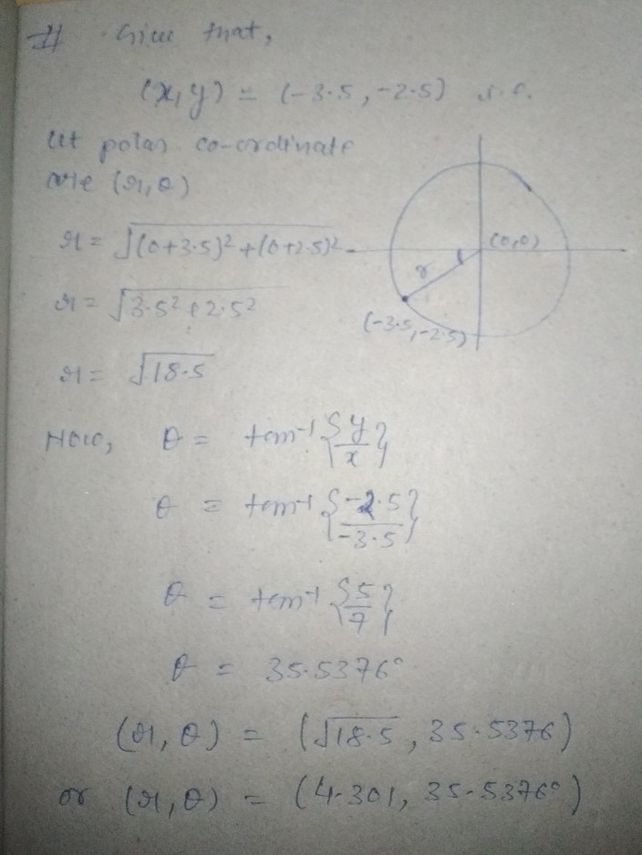 Give that,
(x,y) = (-3.5,-2.5)
let polar co-ordinate
are (r,θ)
r = √(0+3.5)²+(0+2.5)²
(0,0)
r
(-3.5,-2.5)
r = √3.5²+2.5²
r = √18.5
Now, θ = tan⁻¹{y/x}
θ = tan⁻¹{-2.5/-3.5}
θ = tan⁻¹{5/7}
θ = 35.5376°
(r,θ) = (√18.5, 35.5376)
or (r,θ) = (4.301, 35.5376°)